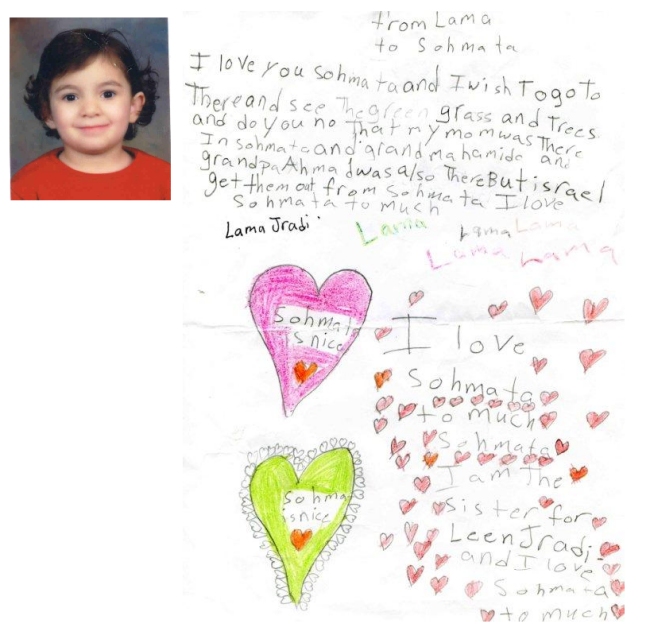 from Lama
to Sohmata
I love you sohmata and I wish To go To
There and see The green grass and Trees
and do you no That my mom was There
In sohmata and grand ma hamide and
grandpa Ahmad was also There But israel
get them out from Sohmata I love
Sohmata to much
Lama Jradi
Lama Lama Lama
Lama Lama
Sohmata
is nice
I love
Sohmata
to much
Sohmata
I am The
sister for
Leen Jradi
and I love
Sohmata
to much
Sohma
is nice